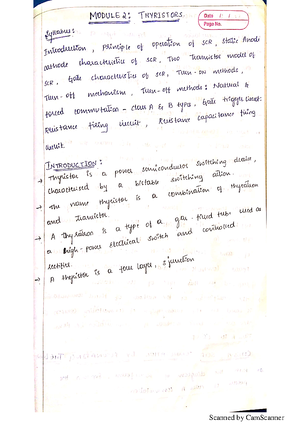 MODULE 2: THYRISTORS
Date
Page No.
Syllabus:
Introduction, Principle of operation of SCR, Static Anode
cathode characteristics of SCR, Two transistor model of
SCR, Gate characteristics of SCR, Turn-on methods,
Turn-off mechanism, Turn-off methods: Natural &
forced commutation - class A & B types, Gate trigger circuit:
Resistance firing circuit, Resistance capacitance firing
circuit.
INTRODUCTION:
→ Thyristor is a power semiconductor switching device,
characterised by a bistable switching action.
→ The name thyristor is a combination of thyratron
and transistor.
→ A thyratron is a type of a gas-filled tube used as
a high-power electrical switch and controlled
rectifier.
→ A thyristor is a four layer, 3 junction
Scanned by CamScanner